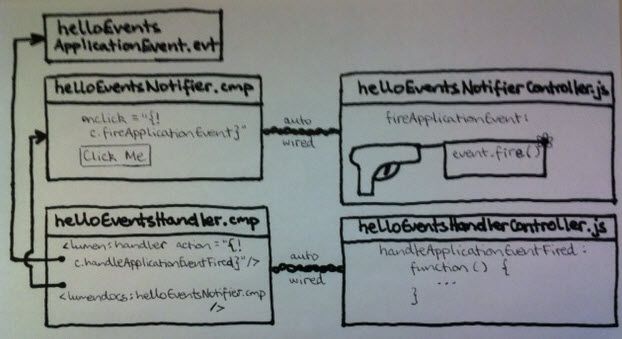 helloEvents
ApplicationEvent.evt
helloEventsNotifier.cmp
onclick = "{!
c.fireApplicationEvent}"
Click Me
auto
wired
helloEventsNotifierController.js
fireApplicationEvent:
event.fire()
helloEventsHandler.cmp
<lumen:handler action="{!
c.handleApplicationEventFired}"/>
<lumendocs:helloEventsNotifier.cmp
/>
auto
wired
helloEventsHandlerController.js
handleApplicationEventFired:
function() {
...
}